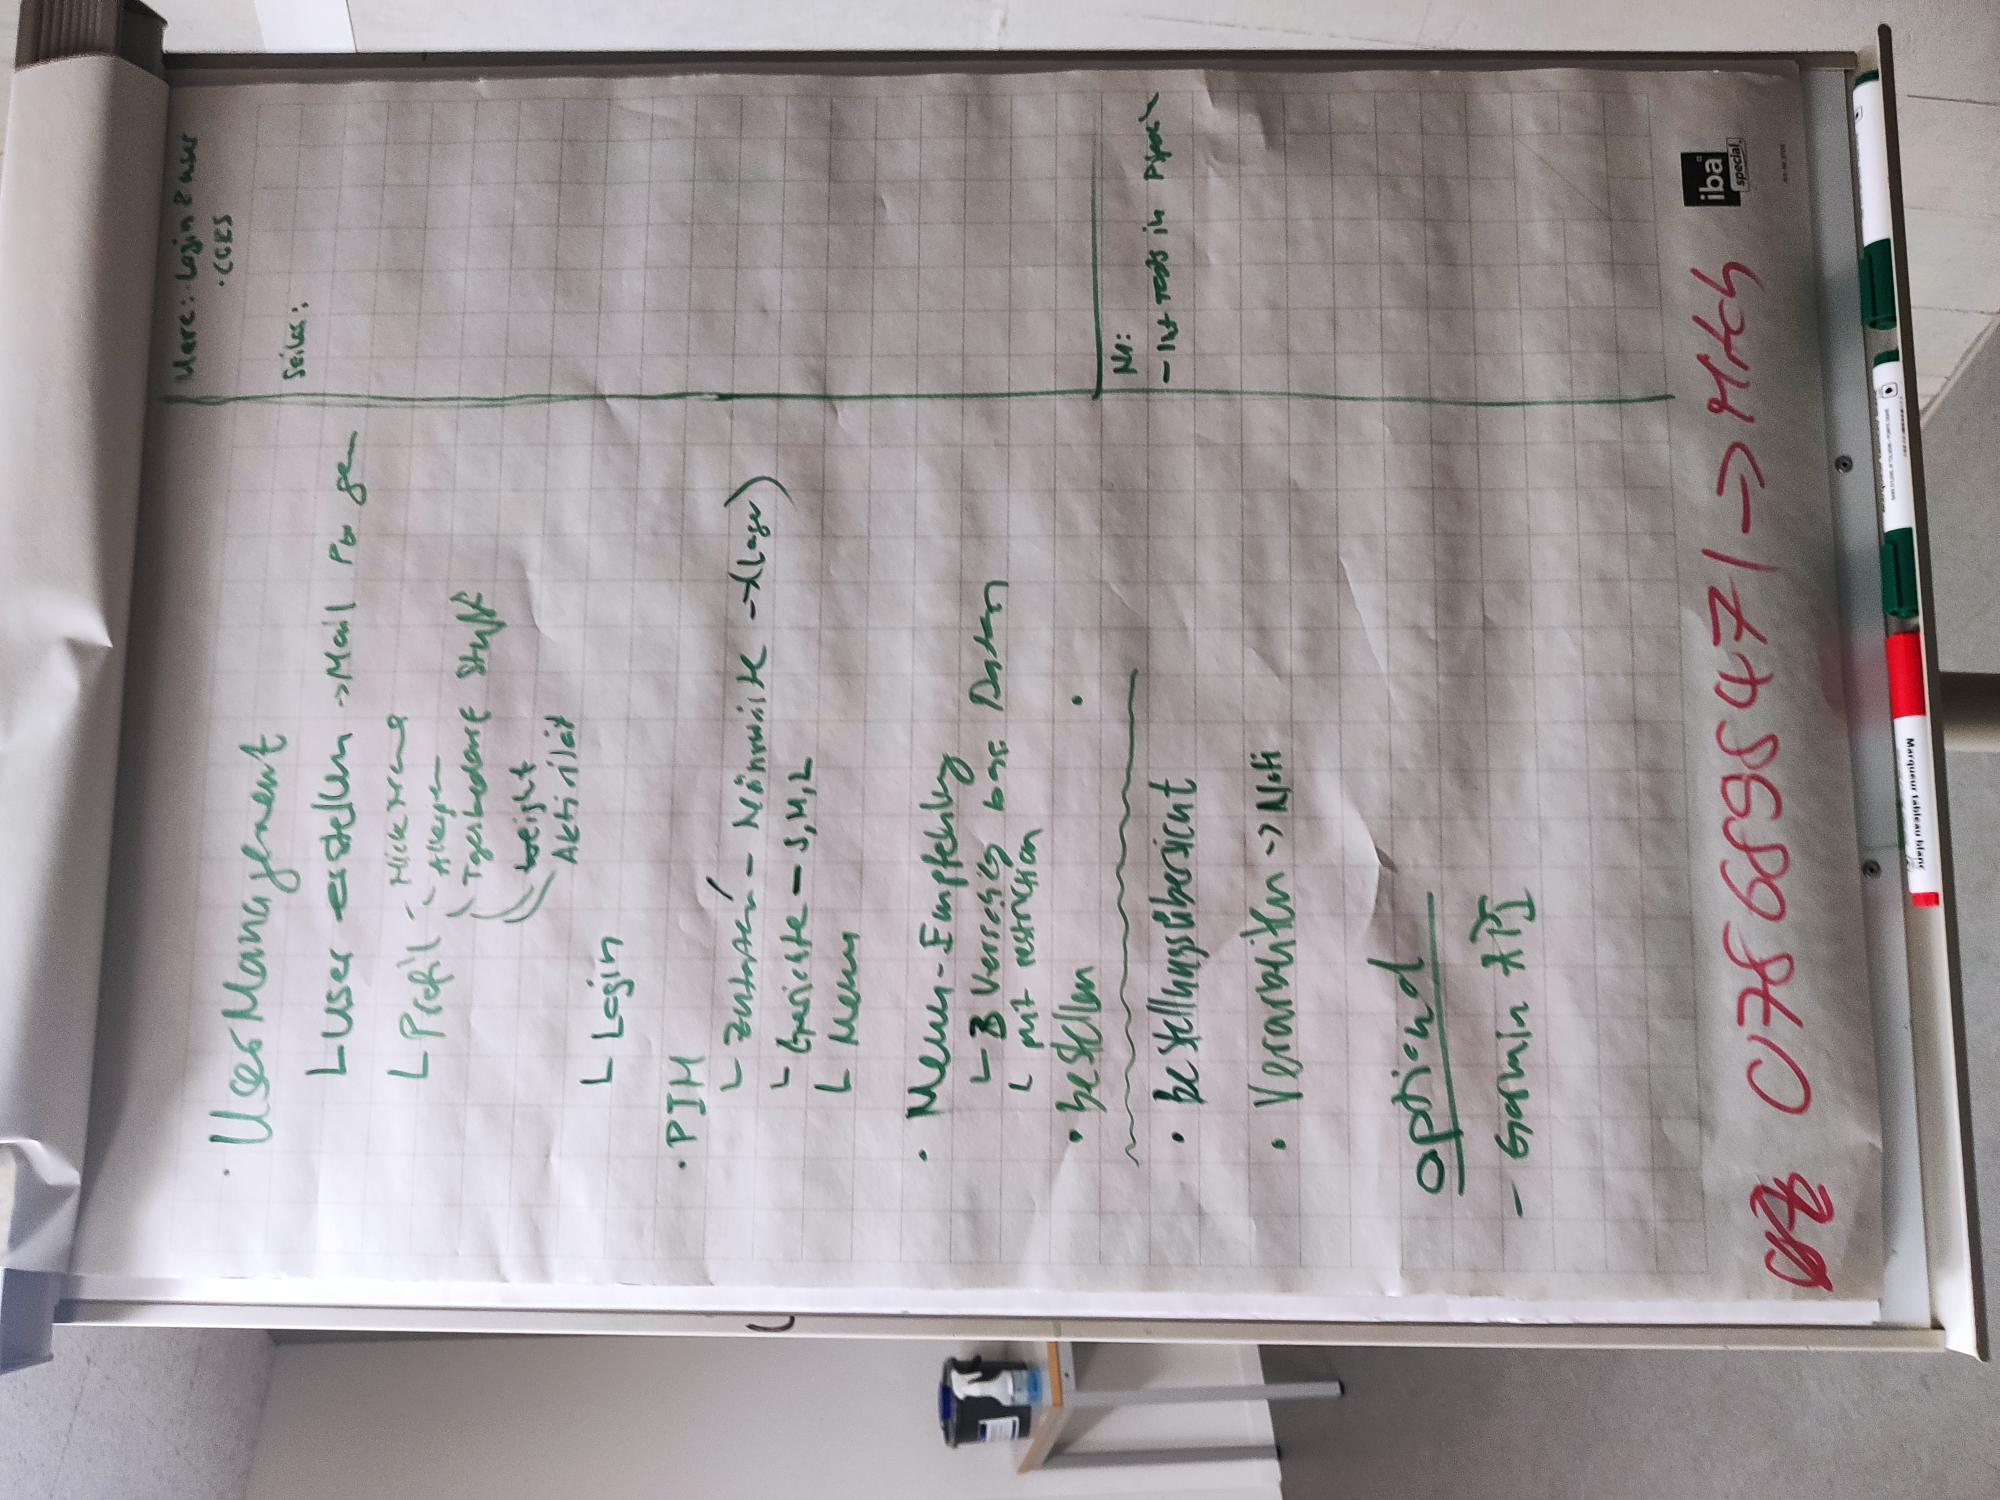 · User Management
L User erstellen -> Mail PW gen
L Profil - Nickname
- Allergen
Tgesbedarf Stuff
weight
Aktivität
L Login
· PIM
L Zutaten - Nährwerte -> (Lager)
L Gerichte - S, M, L
L Menu
· Menu-Empfehlung
L 3 Vorschläg bas. Daten
L mit restriction
· Bestellen
· Bestellungsübersicht
· Verarbeiten -> Noti
optional
- Garmin API
0786898471 -> Mitch
Marc: · Login & user
· CORS
Seiler:
- Int Tests in
iba
special
Marqueur tableau blanc